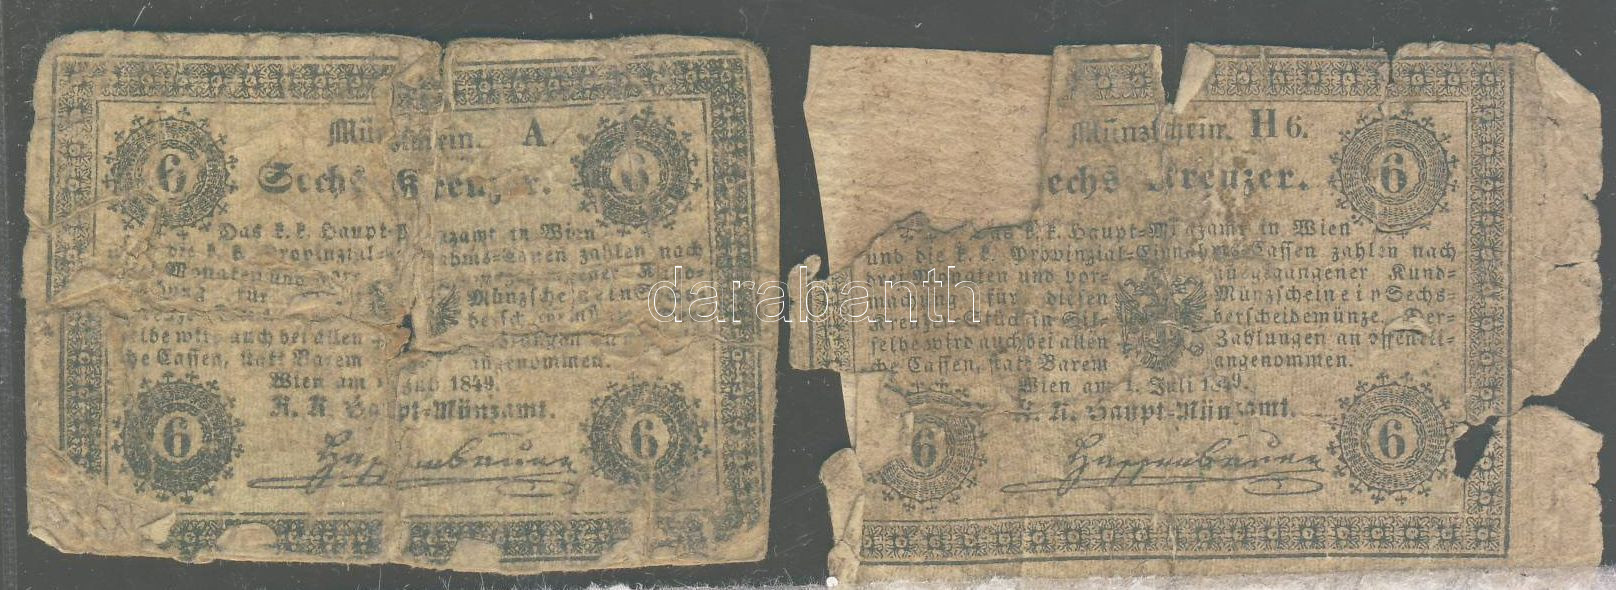 6 Münzschein. A. 6
Sechs Kreuzer.
Das k. k. Haupt-Münzamt in Wien
die k. k. Provinzial- zahlen nach
Monaten und vor- Kund-
für Münzscheine in
wird auch bei allen
Cassen, statt Barem angenommen.
Wien am Juli 1849.
K. K. Haupt-Münzamt.
6 6
Münzschein. H 6. 6
Sechs Kreuzer.
Das k. k. Haupt-Münzamt in Wien
und die k. k. Provinzial-Einnahms-Cassen zahlen nach
drei Monaten und vor- ausgegangener Kund-
machung für diesen Münzschein ein Sechs-
Kreuzer-Stück in Sil- berscheidemünze. Der-
selbe wird auch bei allen Zahlungen an öffentli-
che Cassen, statt Barem angenommen.
Wien am 1. Juli 1849.
K. K. Haupt-Münzamt.
6 6
darabanth